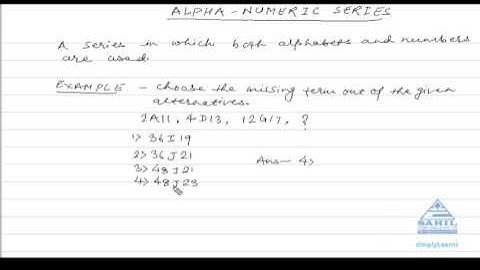 ALPHA-NUMERIC SERIES
A series in which both alphabets and numbers
are used.
EXAMPLE - choose the missing term out of the given
alternatives.
2A11, 4D13, 12G17, ?
1> 36I19
2> 36J21
3> 48J21
4> 48J23
Ans- 4>
SAHIL
simplyLearnt